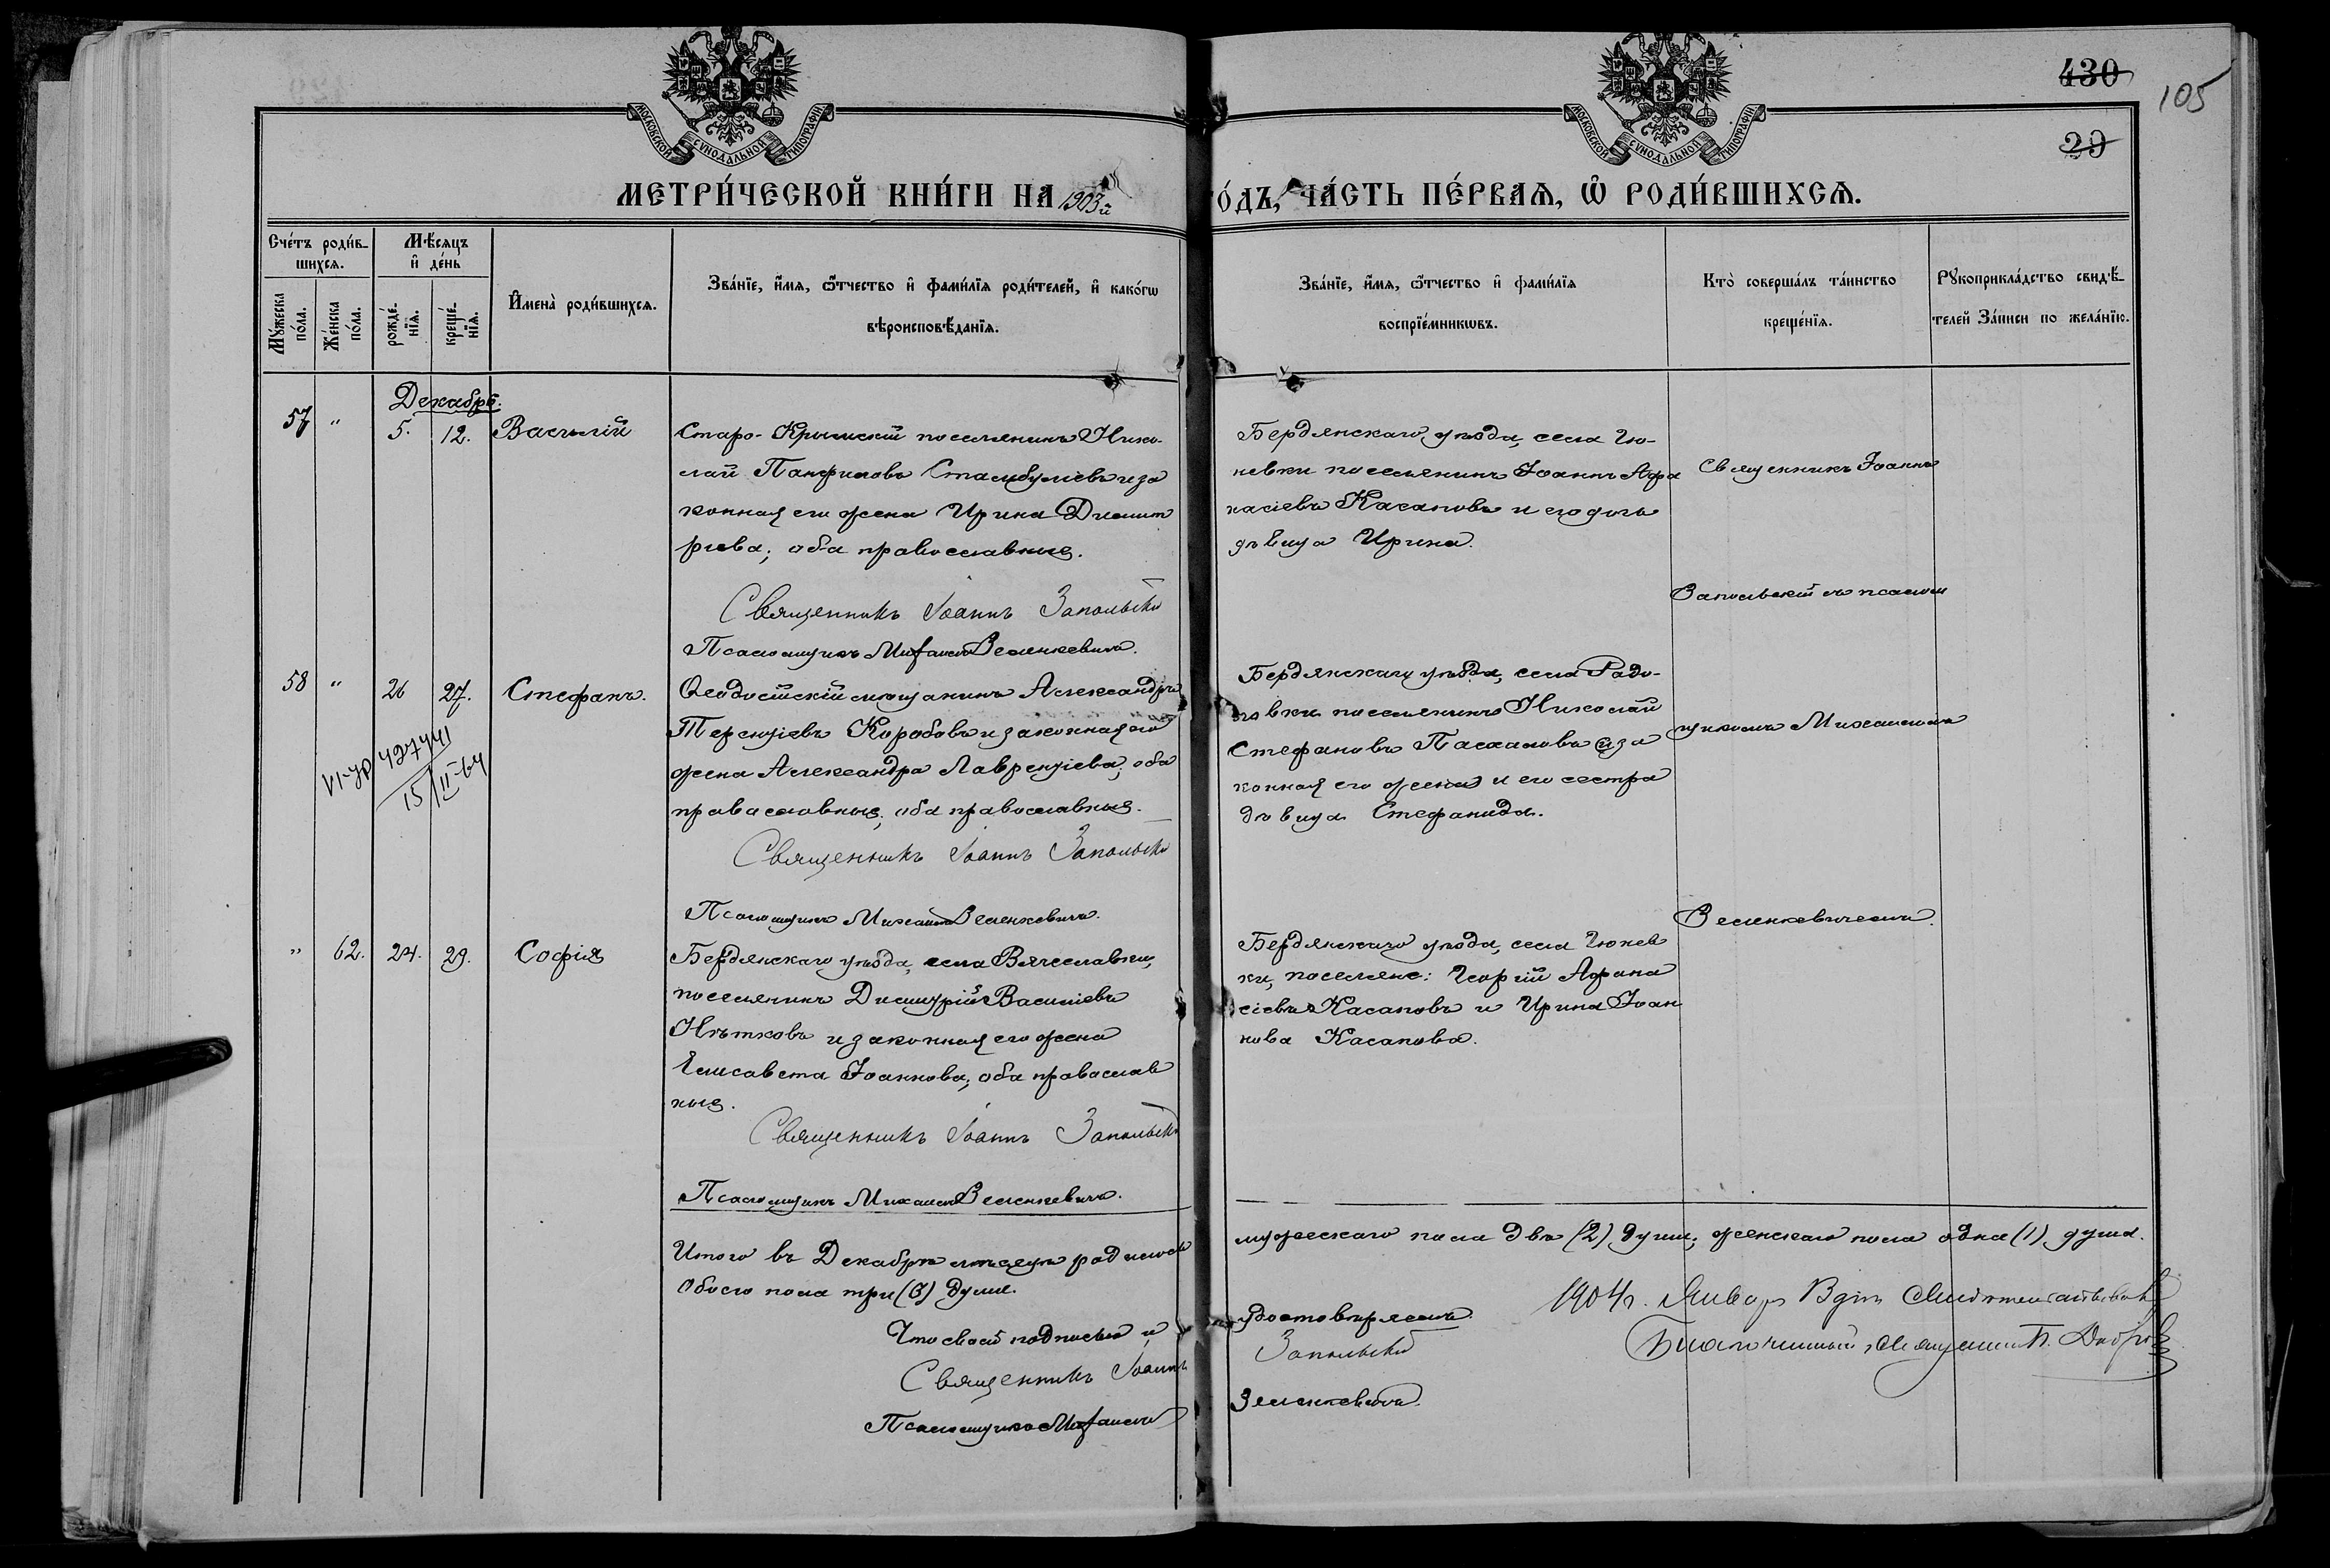 430
105
29
МОСКОВСКОЙ СѴНОДАЛЬНОЙ ТИПОГРАФІИ
МОСКОВСКОЙ СѴНОДАЛЬНОЙ ТИПОГРАФІИ
МЕТРИ́ЧЕСКОЙ КНИ́ГИ НА 1903й
ГО́ДЪ, ЧА́СТЬ ПЕ́РВАЯ, Ѽ РОДИ́ВШИХСЯ.
Сче́тъ роди́в-
шихся.
Мꙋ́жеска по́ла.
Же́нска по́ла.
Мѣ́сяцъ
и҆ де́нь
рожде́-
нїя.
креще́-
нїя.
И҆мена̀ роди́вшихся.
Зва́нїе, и҆́мя, ѻ҆́тчество и҆ фами́лїя роди́телей, и҆ како́гѡ
вѣроисповѣ́данїя.
Зва́нїе, и҆́мя, ѻ҆́тчество и҆ фами́лїя
воспрїе́мникѡвъ.
Кто̀ соверша́лъ та́инство
креще́нїя.
Рꙋкоприкла́дство свидѣ́-
телей за́писи по жела́нїю.
Декабрь.
57 " 5. 12. Василій
Старо-Крымскій поселянинъ Нико-
лай Панфиловъ Стамбуліевъ и за
конная его жена Ирина Димит
ріева; оба православные.
Священникъ Іоаннъ Запольскій
Псаломщикъ Михаилъ Зеленкевичъ.
Бердянскаго уѣзда, села Гю-
невки поселянинъ Іоаннъ Афа
насіевъ Касаповъ и его дочь
дѣвица Ирина.
58 " 26 27. Стефанъ.
VI-ур 427441
15/II-64
Ѳеодосійскій мѣщанинъ Александръ
Терентіевъ Коробовъ и законная его
жена Александра Лаврентіева; оба
православные; оба православные.
Священникъ Іоаннъ Запольскій
Псаломщикъ Михаилъ Зеленкевичъ.
Бердянскаго уѣзда, села Радо-
ловки поселянинъ Николай
Стефановъ Паскаловъ и за
конная его жена и его сестра
дѣвица Стефанида.
" 62. 24. 29. Софія
Бердянскаго уѣзда, села Вячеславки,
поселянинъ Димитрій Василіевъ
Нѣтковъ и законная его жена
Елисавета Іоаннова; оба православ
ные.
Священникъ Іоаннъ Запольскій
Псаломщикъ Михаилъ Зеленкевичъ.
Бердянскаго уѣзда, села Гюнев
ки, поселяне: Георгій Афана
сіевъ Касаповъ и Ирина Іоан
нова Касапова.
Священникъ Іоаннъ
Запольскій съ псалом
щикомъ Михаиломъ
Зеленкевичемъ.
Итого въ Декабрѣ мѣсяцѣ родилось
обоего пола три (3) души.
мужескаго пола двѣ (2) души; женскаго пола одна (1) душа.
Что своей подписью и
удостовѣряемъ
Священникъ Іоаннъ
Запольскій
Псаломщикъ Михаилъ
Зеленкевичъ.
1904 г. Января
Благочинный, Священникъ